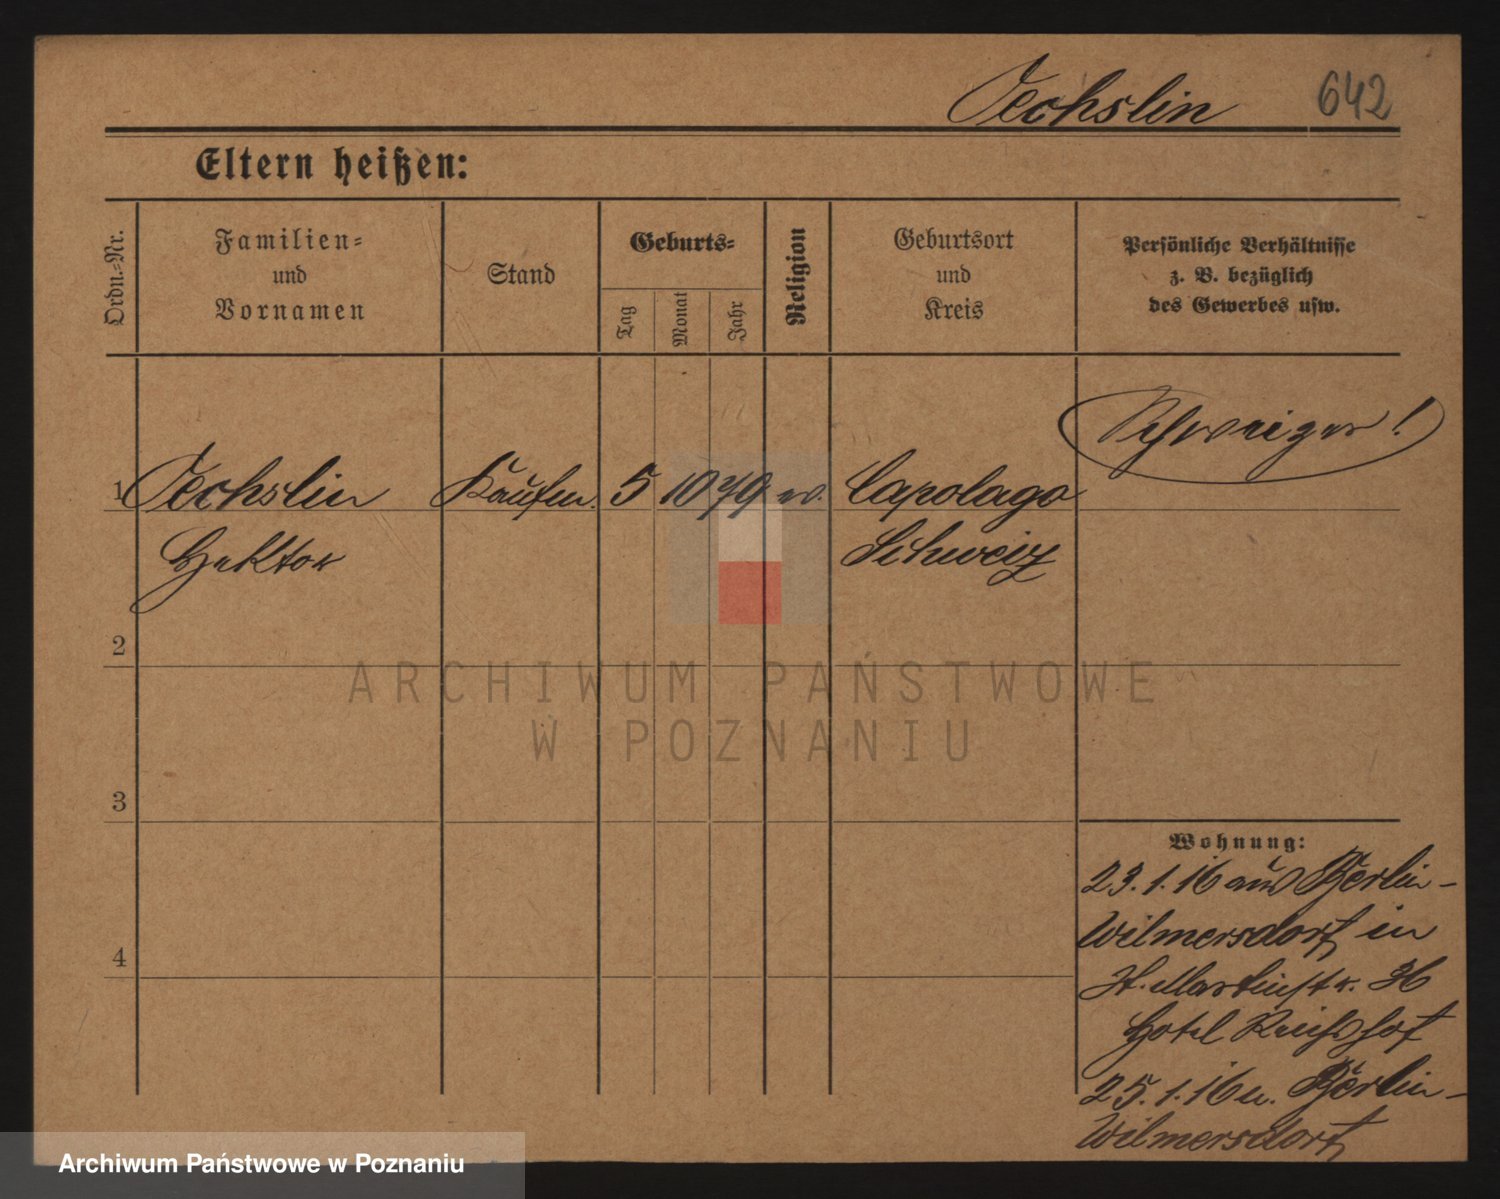 Oechslin 642
Eltern heißen:
Ordn.-Nr.
Familien-
und
Vornamen
Stand
Geburts-
Tag
Monat
Jahr
Religion
Geburtsort
und
Kreis
Persönliche Verhältnisse
z. B. bezüglich
des Gewerbes usw.
Schweizer!
1 Oechslin Kaufm. 5 10 79 Capolago
Hektor Schweiz
2
3
4
Wohnung:
23.1.16 aus Berlin-
Wilmersdorf in
St. Martinstr. 36
Hotel Reichshof
25.1.16 n. Berlin-
Wilmersdorf
ARCHIWUM PAŃSTWOWE
W POZNANIU
Archiwum Państwowe w Poznaniu